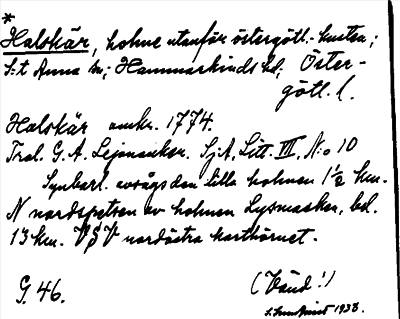 *
Halskär, holme utanför östergötl. kusten;
S:t Anna sn; Hammarkinds hd; Öster-
götl. l.
Halskär omkr. 1774.
Tral. G. A. Leijonancker. SjA, Litt. III, N:o 10
Synbarl. avsågs den lilla holmen 1½ km.
N nordspetsen av holmen Lysmasken, bel.
13 km. VSV nordöstra karthörnet.
G. 46.
(Vänd!)
1938.